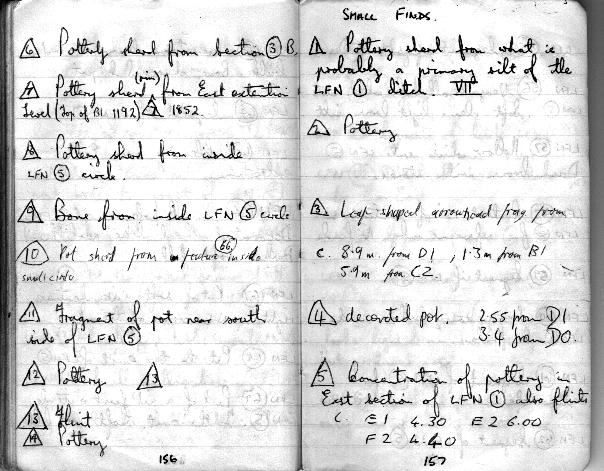 6 Pottery sherd from Section 3 B.
7 Pottery sherd (rim) from East extention
Level (Top of B1 1192) 7 1852.
8 Pottery sherd from inside
LFN 5 circle.
9 Bone from inside LFN 5 circle
10 Pot sherd from feature 66 inside
small circle
11 Fragment of pot near south
side of LFN 5
12 Pottery 13
13 Flint
14 Pottery
156
SMALL FINDS.
1 Pottery sherd from what is
probably a primary silt of the
LFN 1 ditch. VII
2 Pottery
3 Leaf shaped arrowhead frag from
c. 8.9m from D1, 1.3m from B1
5.9m from C2.
4 decorated pot. 2.55 from D1
3.4 from D0.
5 Concentration of pottery in
East section of LFN 1 also flints
C. E1 4.30 E2 6.00
F2 4.40
157